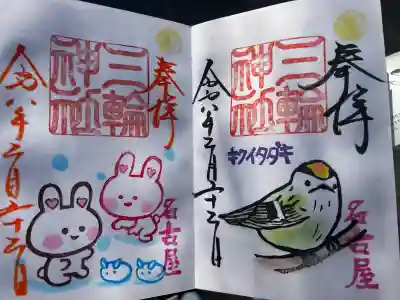 奉拝
三輪
神社
令和八年二月二十二日
キクイタダキ
名古屋
奉拝
三輪
神社
令和八年二月二十二日
名古屋